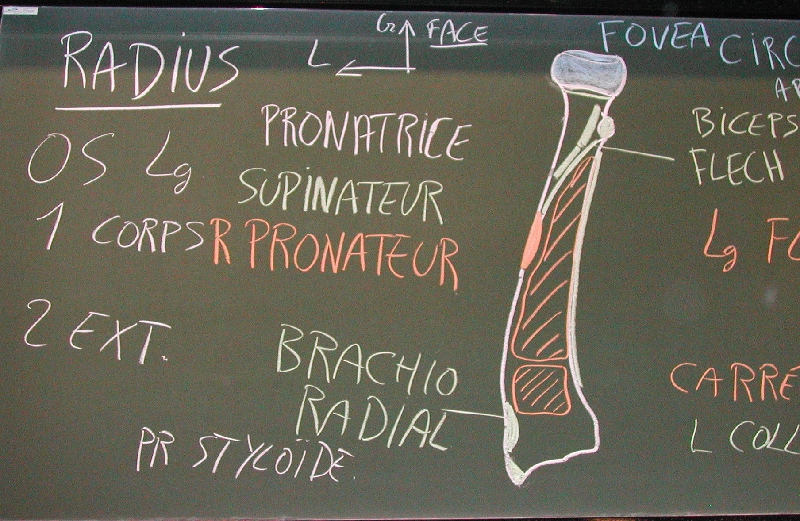 RADIUS
L
Cr
FACE
FOVEA CIRC
AR
OS Lg
PRONATRICE
BICEPS
SUPINATEUR
FLECH
1 CORPS
R PRONATEUR
Lg
2 EXT.
BRACHIO
RADIAL
CARRÉ
L COLL
PR STYLOÏDE.